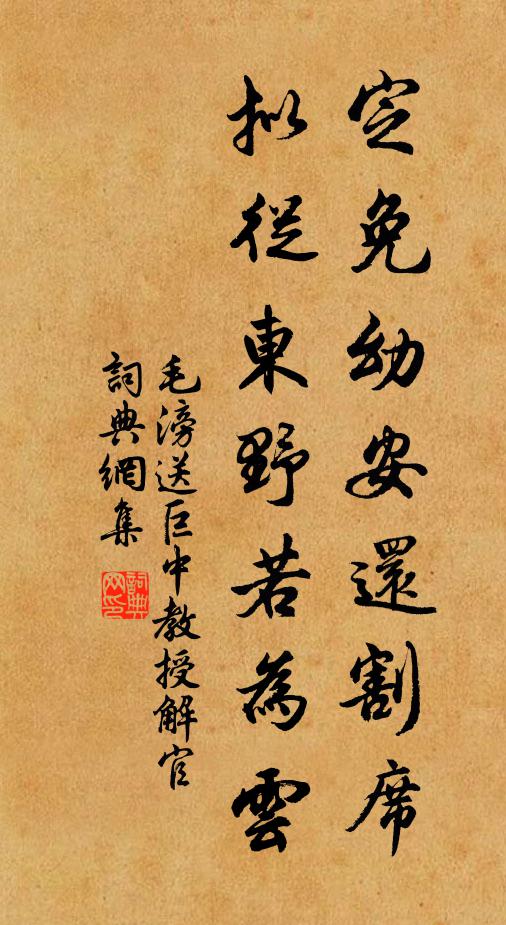 定免幼安還割席
拟從東野若為雲
毛滂送巨中教授解官
詞典網集
詞典网印